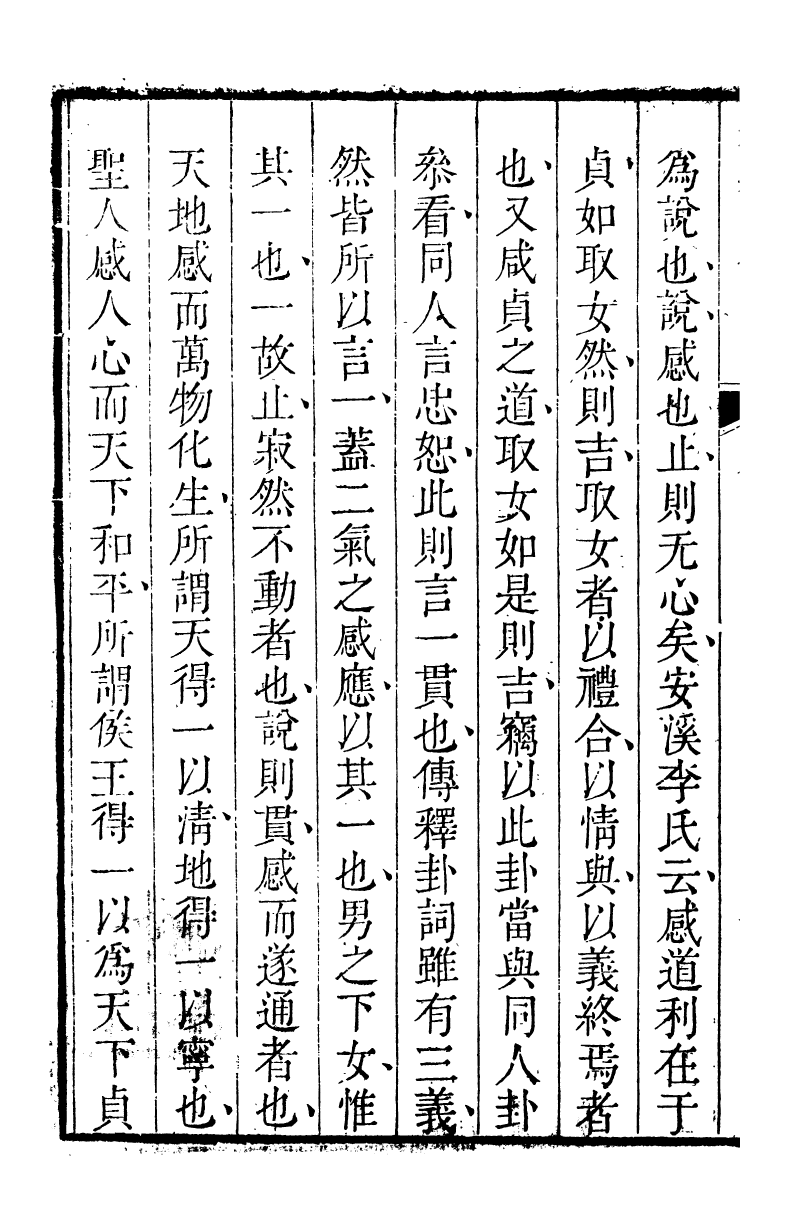 爲說也說感也止則无心矣安溪李氏云感道利在于
貞如取女然則吉取女者以禮合以情與以義終焉者
也又咸貞之道取女如是則吉竊以此卦當與同人卦
叅看同人言忠恕此則言一貫也傳釋卦詞雖有三義
然皆所以言一蓋二氣之感應以其一也男之下女惟
其一也一故止寂然不動者也說則貫感而遂通者也
天地感而萬物化生所謂天得一以淸地得一以寧也
聖人感人心而天下和平所謂侯王得一以爲天下貞